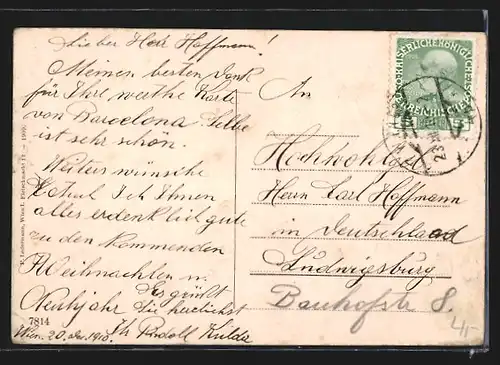 Lieber Herr Hoffmann!
Meinen besten Dank
für Ihre werthe Karte
von Barcelona Selbe
ist sehr schön.
Weiters wünsche
Ich Ihnen
alles erdenklich gute
zu den kommenden
Weihnachten u.
Neujahr Es grüßt
Sie herzlichst
Ihr Rudolf Kulda
Wien, 20. Dez. 1910.
7814
E. Ledermann, Wien I. Fleischmarkt 12. – 1909.
An
Hochwohlg.
Herrn Carl Hoffmann
in Deutschland
Ludwigsburg
Bauhofstr 8.
KAISERLICHE KÖNIGLICHE
ÖSTERREICHISCHE
5
23